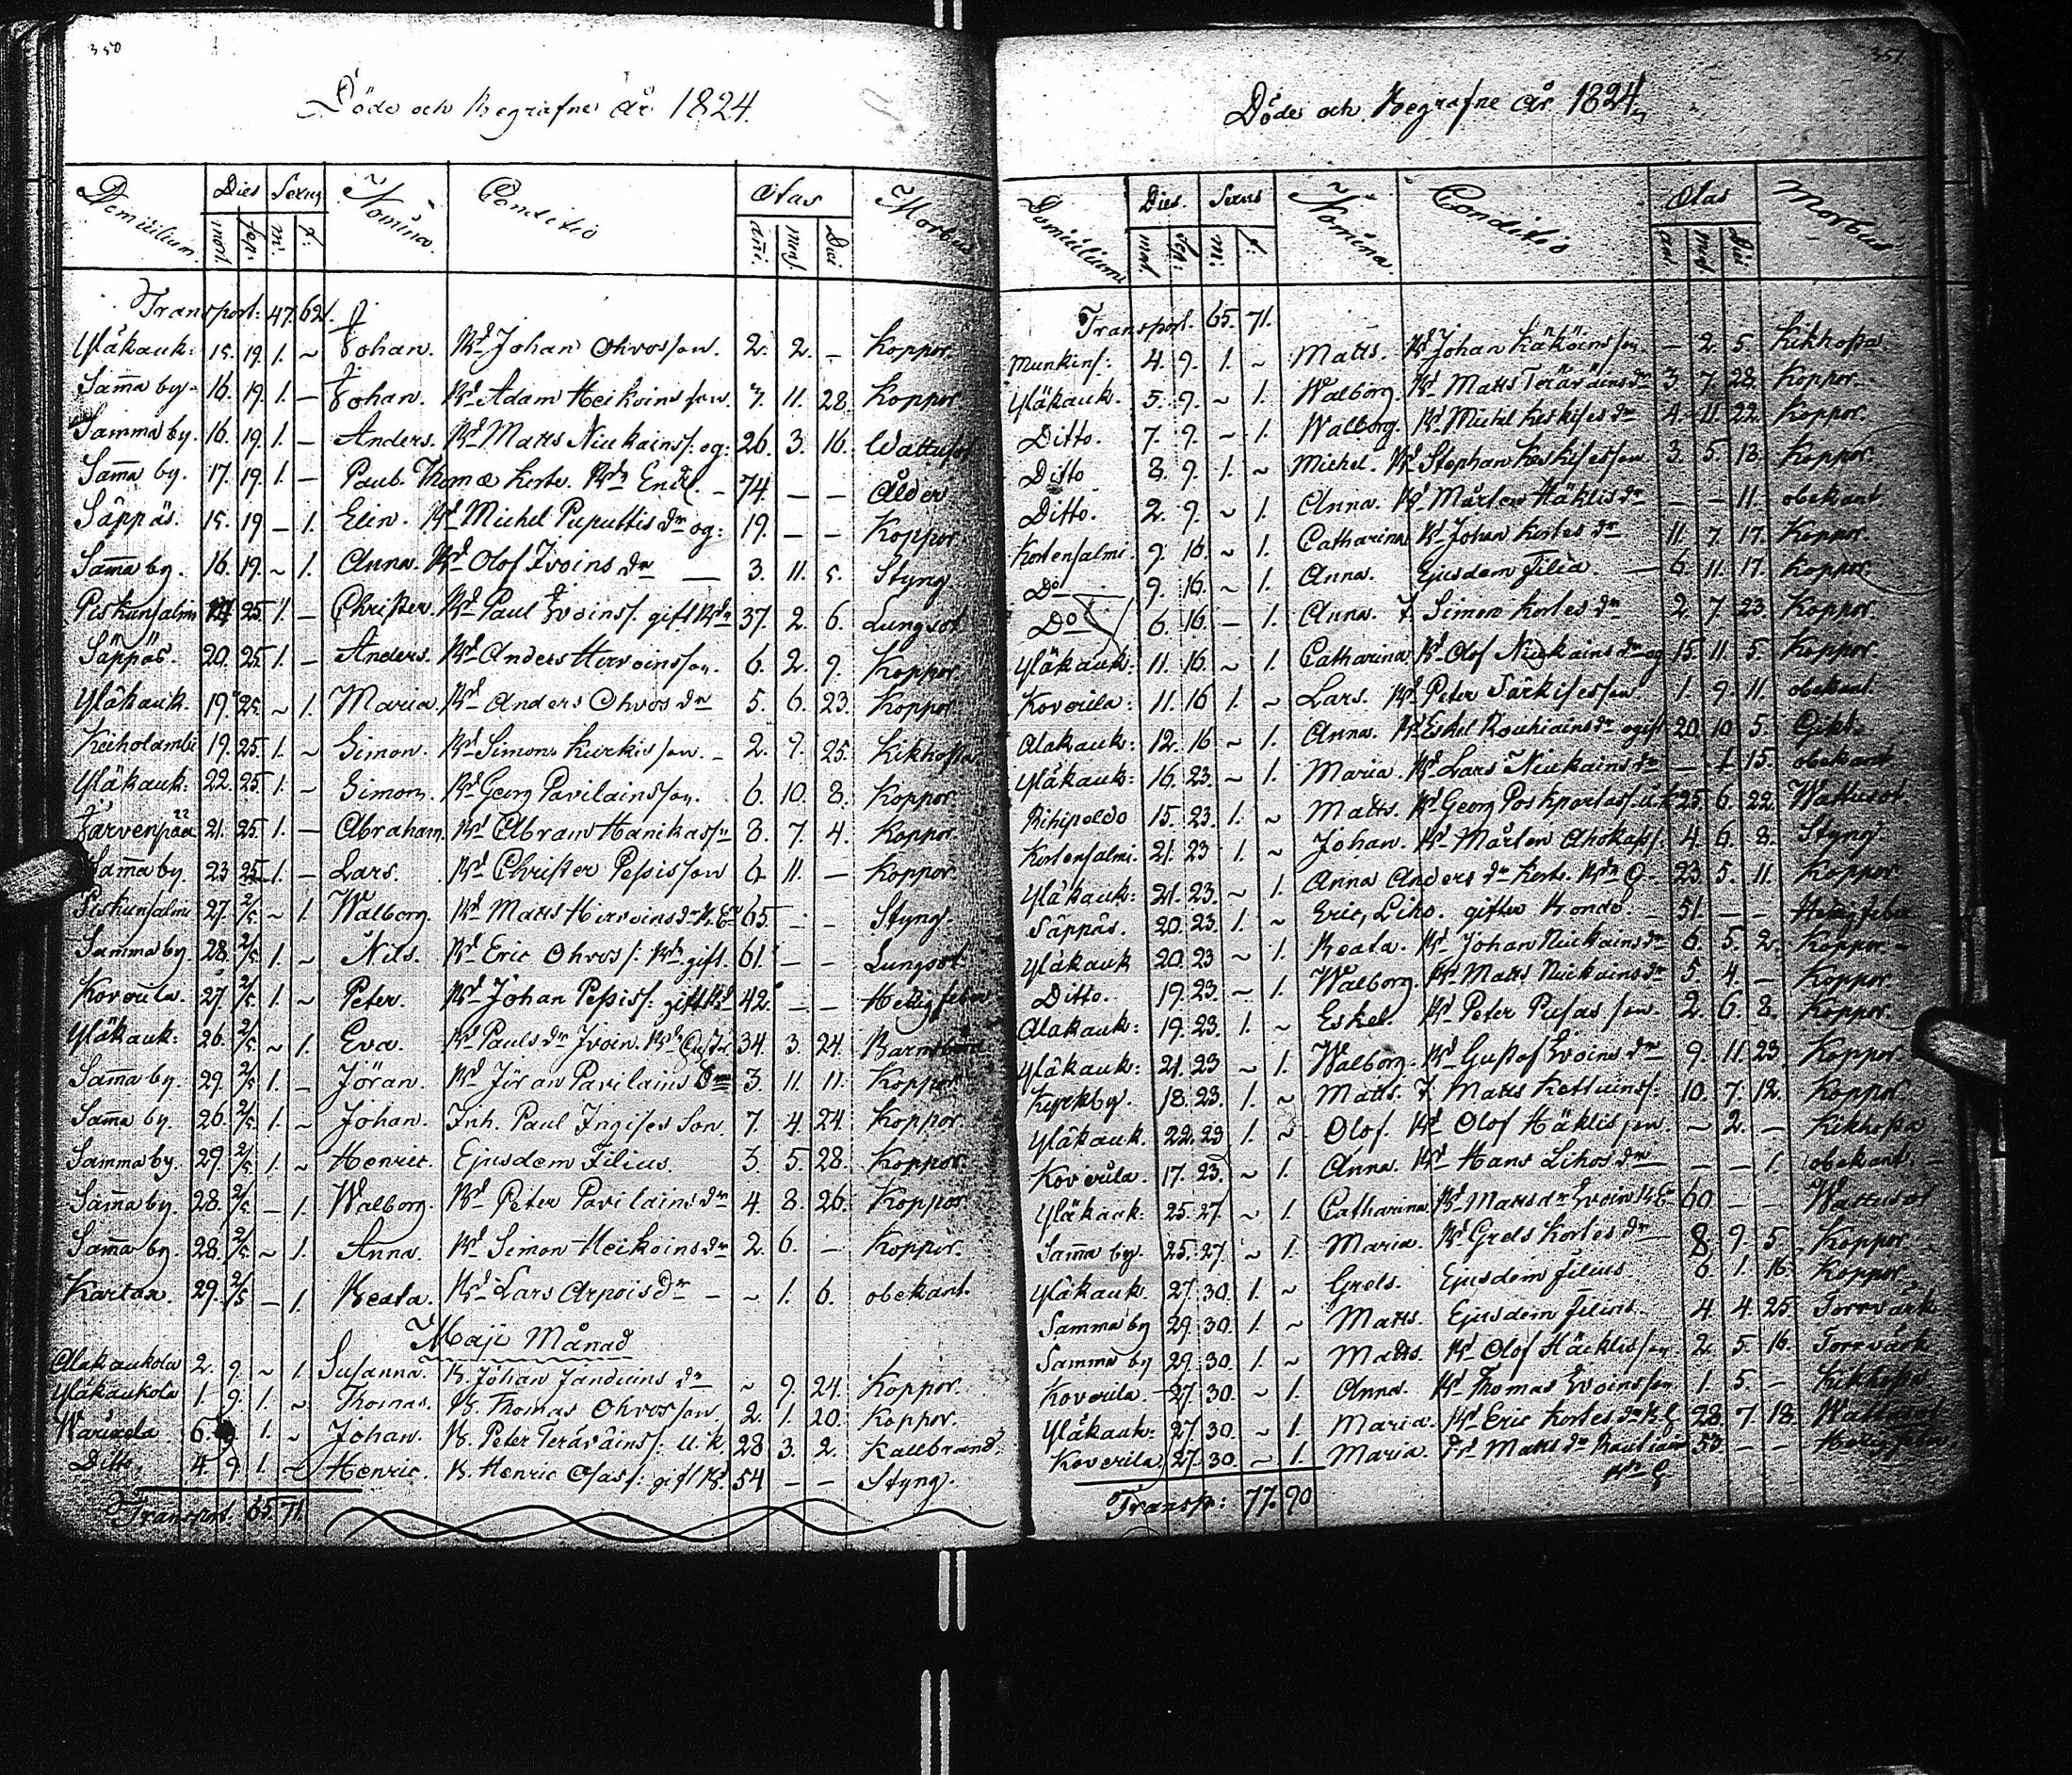 350
Döde och Begrafne år 1824.
Domicilium. Dies Sexus Nomina. Conditio Ætas Morbus
mort. sep. m. f. ani. mens. Dies
Transport: 47. 62.
Yläkauk: 15. 19. 1. ~ Johan. Bd Johan Ohvosson. 2. 2. – Koppor.
Sam̄a by. 16. 19. 1. – Johan. Bd Adam Heikoinsson. 7. 11. 28. Koppor
Samma by. 16. 19. 1. – Anders. Bd Matts Niukains. og: 26. 3. 16. Wattusot
Sam̄a by. 17. 19. 1. – Paul. Thomæ Korte. Enkl. – 74. – – Ålder
Säppäs. 15. 19 – 1. Elin. Bd Michel Puputtis dr og: 19. – – Koppor
Sam̄a by. 16. 19. ~ 1. Anna. Bd Olof Ivoins dr – 3. 11. 5. Styng.
Piskunsalmi 25. 1. – Christer. Bd Paul Ivoins. gift 37. 2. 6. Lungsot
Säppäs. 20. 25. 1. – Anders. Bd Anders Hirvoinsson. 6. 2. 9. Koppor
Yläkauk. 19. 25. ~ 1. Maria. Bd Anders Ohvos dr 5. 6. 23. Koppor
Keiholambi 19. 25. 1. ~ Simon. Bd Simon Kurkisson. – 2. 9. 25. Kikhosta
Yläkauk: 22. 25. 1. ~ Simon. Bd Georg Pavilainsson. 6. 10. 8. Koppor.
Järvenpää 21. 25. 1. – Abraham. Bd Abram Hanikass:n 8. 7. 4. Koppor
Sam̄a by. 23 25 1. – Lars. Bd Christer Pessisson 6. 11. – Koppor.
Piskunsalmi 27. 2/5 ~ 1. Walborg. Bd Matts Hirvoins dr 65 – – Styng.
Samma by. 28. 2/5 1. ~ Nils. Bd Eric Ohvos: gift. 61. – – Lungsot
Koverila. 27. 2/5 1. ~ Peter. Bd Johan Pessis: gift 42. – – Hetsig feber
Yläkauk: 26. 2/5 ~ 1. Eva. Bd Pauls dr Ivoin. 34. 3. 24. Barnsbörd
Sam̄a by. 29. 2/5 1. – Jöran. Bd Jöran Pavilains 3. 11. 11. Koppor
Sam̄a by. 26. 2/5 1. ~ Johan. Inh. Paul Ingises Son. 7. 4. 24. Koppor
Samma by. 29. 2/5 1. ~ Henric. Ejusdem Filius. 3. 5. 28. Koppor
Sam̄a by. 28. 2/5 – 1. Walborg. Bd Peter Pavilains dr 4. 8. 26. Koppor
Sam̄a by. 28. 2/5 ~ 1. Anna. Bd Simon Heikoins dr 2. 6. – Koppor.
Kartan. 29. 2/5 – 1. Beata. Bd Lars Arpois dr – ~ 1. 6. obekant.
Maji Månad
Alakaukola 2. 9. ~ 1. Susanna. B. Johan Janduins dr ~ 9. 24. Koppor.
Yläkaukola 1. 9. 1. ~ Thomas. B. Thomas Ohvosson 2. 1. 20. Koppor.
6. 1. ~ Johan. B. Peter Teräväins: u.k. 28 3. 2. Kallbrand.
Ditto. 4. 9. 1. ~ Henric. B. Henric Asas: gift Bd. 54 – – Styng.
Transport. 65. 71.
351
Döde och Begrafne år 1824.
Domicilium Dies. Sexus Nomina. Conditio Ætas Morbus
mort. sep: m: f: ani. mens Dies
Transport. 65. 71.
Munkins: 4. 9. 1. ~ Matts. Bd Johan Käköinsson. – 2. 5. Kikhosta
Yläkauk. 5. 9. ~ 1. Walborg. Bd Matts Teräväins dr 3. 7. 28. Koppor.
Ditto. 7. 9. ~ 1. Walborg. Bd Michel Keskises dr 4. 11. 22. Koppor
Ditto 8. 9. 1. ~ Michel. Bd Stephan Keskisesson. 3. 5. 13. Koppor
Ditto. 2. 9. ~ 1. Anna. Bd Mårten Häklis dr – – 11. obekant
Kortensalmi 9. 16. ~ 1. Catharina Bd Johan Kortes dr 11. 7. 17. Koppor.
Do 9. 16. ~ 1. Anna. Ejusdem Filia – 6. 11. 17. Koppor
Do 6. 16. – 1. Anna. T. Simon Kortes dr 2. 7. 23 Koppor.
Yläkauk: 11. 16. ~ 1. Catharina Bd Olof Niukains dr og 15. 11. 5. Koppor.
Koverila: 11. 16 1. ~ Lars. Bd Peter Särkisesson. 1. 9. 11. obekant
Alakauk: 12. 16 ~ 1. Anna. Bd Eskel Rouhiains dr ogift 20 10 5. Gikt.
Yläkauk: 16. 23. ~ 1. Maria. Bd Lars Niukains dr – 1. 15. obekant
Rihipeldo 15. 23. 1. ~ Matts. Bd Georg 25 6. 22. Wattusot
Kortensalmi. 21. 23 1. ~ Johan. Bd Mårten Ahokas: 4 6. 8. Styng
Yläkauk: 21. 23. ~ 1. Anna Anders dr Korte. 23. 5. 11. Koppor
Säppäs. 20. 23. 1. ~ Eric, Liho. gifter Bonde. 51. – – Hetsig feber
Yläkauk 20. 23 ~ 1. Beata. Bd Johan Niukains dr 6. 5. 2. Koppor.
Ditto. 19. 23. ~ 1. Walborg. Bd Matts Niukains dr 5. 4. – Koppor
Alakauk: 19. 23. 1. ~ Eskel. Bd Peter Pusas son. 2. 6. 8. Koppor
Yläkauk: 21. 23 ~ 1. Walborg. Bd Gustaf Ivoins dr 9. 11. 23. Koppor.
Kyrkby. 18. 23. 1. ~ Matts. T. Matts Kettuins: 10. 7. 12. Koppor
Yläkauk. 22. 23 1. ~ Olof. Bd Olof Häklisson. – 2. – Kikhosta
Koverila. 17. 23. ~ 1. Anna. Bd Hans Lihos dr – – 1. obekant
Yläkauk: 25. 27. ~ 1. Catharina. Bd Matts dr Ivoin 60. – – Wattusot
Sam̄a by. 25. 27. ~ 1. Maria. Bd Grels Kortes dr 8. 9. 5. Koppor
Yläkauk. 27. 30. 1. ~ Grels. Ejusdem filius. 6. 1. 16. Koppor.
Samma by 29. 30. 1. ~ Matts. Ejusdem filius. 4. 4. 25. Torrvärk
Samma by 29. 30. 1. ~ Matts. Bd Olof Häcklisson 2. 5. 16. Torrvärk
Koverila. 27. 30. ~ 1. Anna. Bd Thomas Ivoinsson 1. 5. – Kikhosta
Yläkauk: 27. 30. ~ 1. Maria. Bd Eric Kortes dr 28. 7. 18. Wattusot
Koverila 27. 30. ~ 1. Maria. Matts dr 53 – – Hetsig feber
Transp: 77. 90